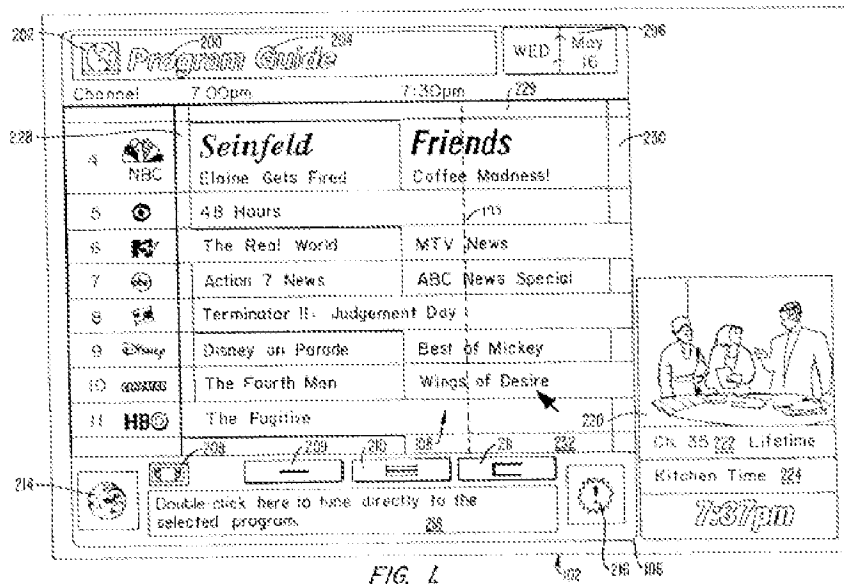 202 200 204 206
Program Guide WED May 16
Channel 7:00pm 7:30pm 229
228 230
4 NBC Seinfeld Friends
Elaine Gets Fired Coffee Madness!
5 48 Hours
6 The Real World MTV News
7 Action 7 News ABC News Special
8 Terminator II- Judgement Day
9 Disney Disney on Parade Best of Mickey
10 The Fourth Man Wings of Desire
11 HBO The Fugitive
208 209 210 108 232 220
Ch. 35 222 Lifetime
Kitchen Time 224
7:37pm
214
Double-click here to tune directly to the
selected program.
102 216 106
FIG.